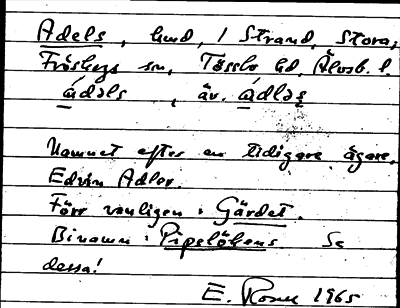 Adels, hmd, i Strand, Stora,
Fröskogs sn, Tössbo hd, Älvsb. l.
ádəls, äv. ádləs
Namnet efter en tidigare ägare,
Edvin Adler.
Förr vanligen: Gärdet.
Binamn: Pipslökens Se
dessa!
E. 1965